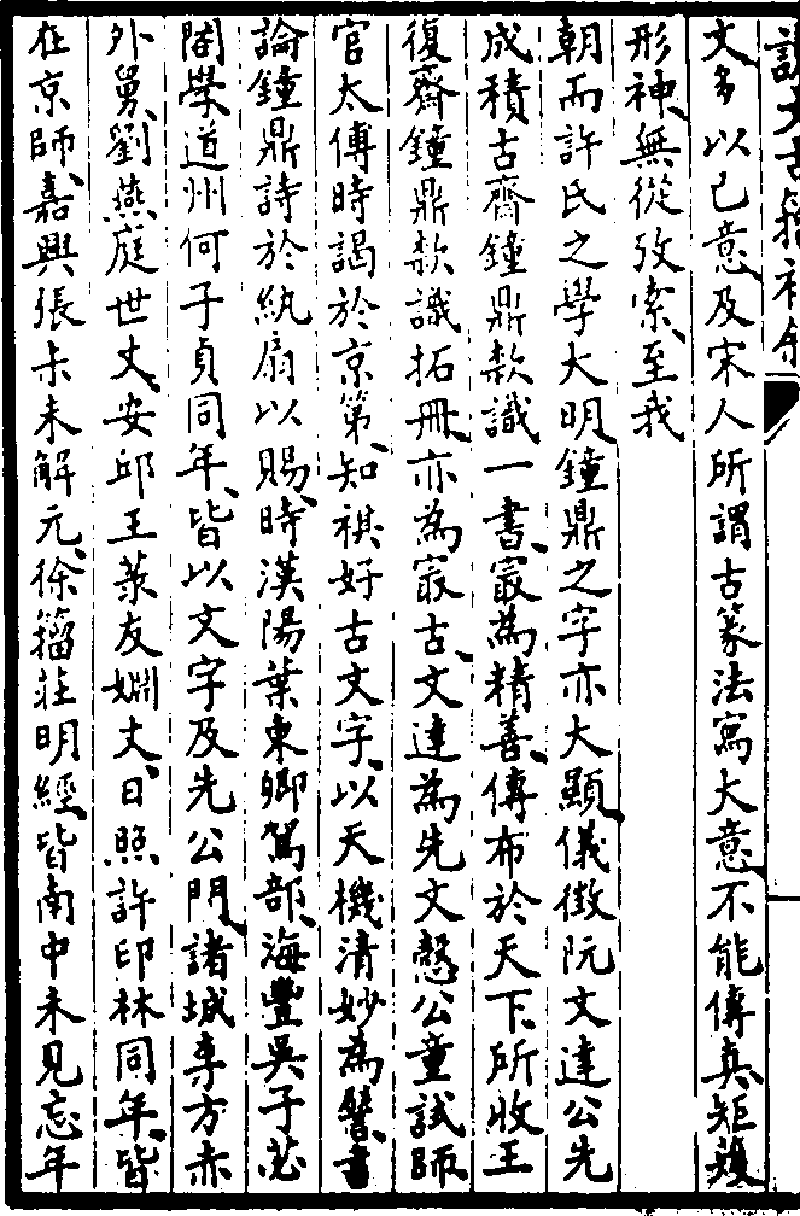 說文古籀補敘
文多以已意及宋人所謂古篆法寫大意不能傳真矩矱
形神無從攷索至我
朝而許氏之學大明鐘鼎之字亦大顯儀徵阮文達公先
成積古齋鐘鼎款識一書冣為精善傳布於天下所收王
復齋鐘鼎款識拓冊亦為冣古文達為先文慤公童試師
官太傅時謁於京第知祺好古文字以天機清妙為譬書
論鐘鼎詩於紈扇以賜時漢陽葉東卿駕部海豐吳子苾
閣學道州何子貞同年皆以文字及先公門諸城李方赤
外舅劉燕庭世丈安邱王菉友姻丈日照許印林同年皆
在京師嘉興張尗未解元徐籀莊明經皆南中未見忘年